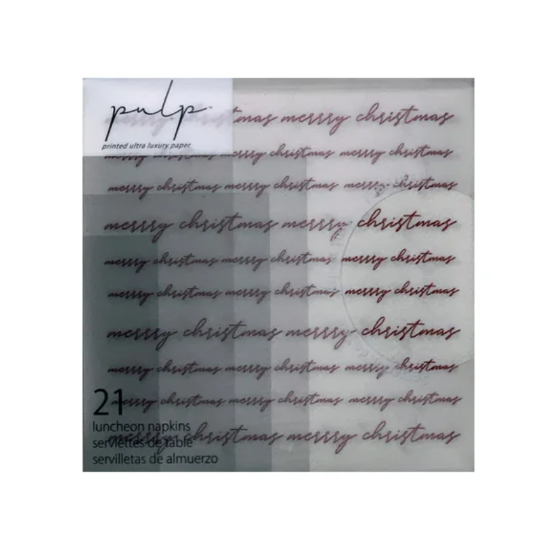 pulp
printed ultra luxury paper
merrry christmas
merrry christmas merrry christmas merrry christmas
merrry christmas merrry christmas merrry christmas
merrry christmas merrry christmas
merrry christmas merrry christmas merrry christmas
merrry christmas merrry christmas merrry christmas
merrry christmas merrry christmas
merrry christmas merrry christmas merrry christmas
21
merrry christmas merrry christmas merrry christmas
luncheon napkins
merrry christmas merrry christmas
serviettes de table
servilletas de almuerzo